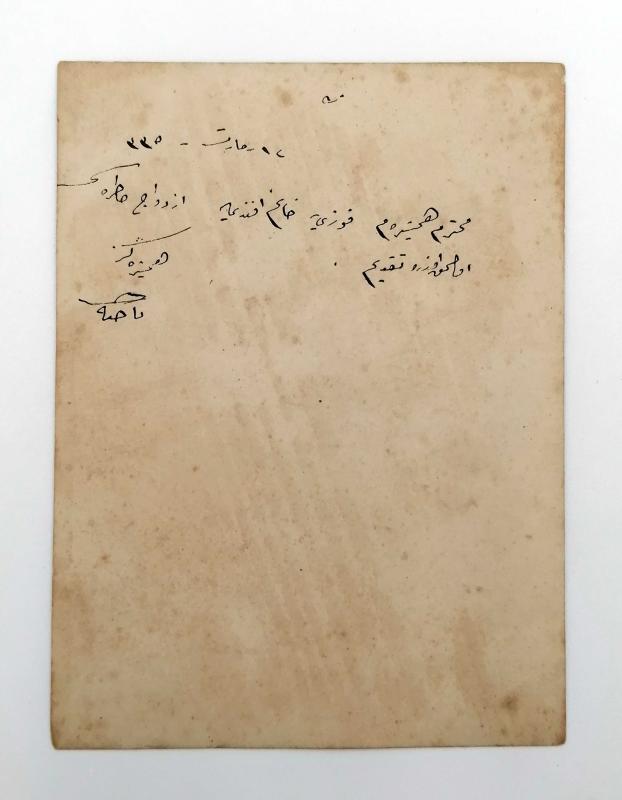 مارت ٣٣٥
محترم همشیره‌م فوزیه خانم افندی‌یه ازدواج خاطره‌سی
اولمق اوزره تقدیم
همشیره‌کز
ناجیه